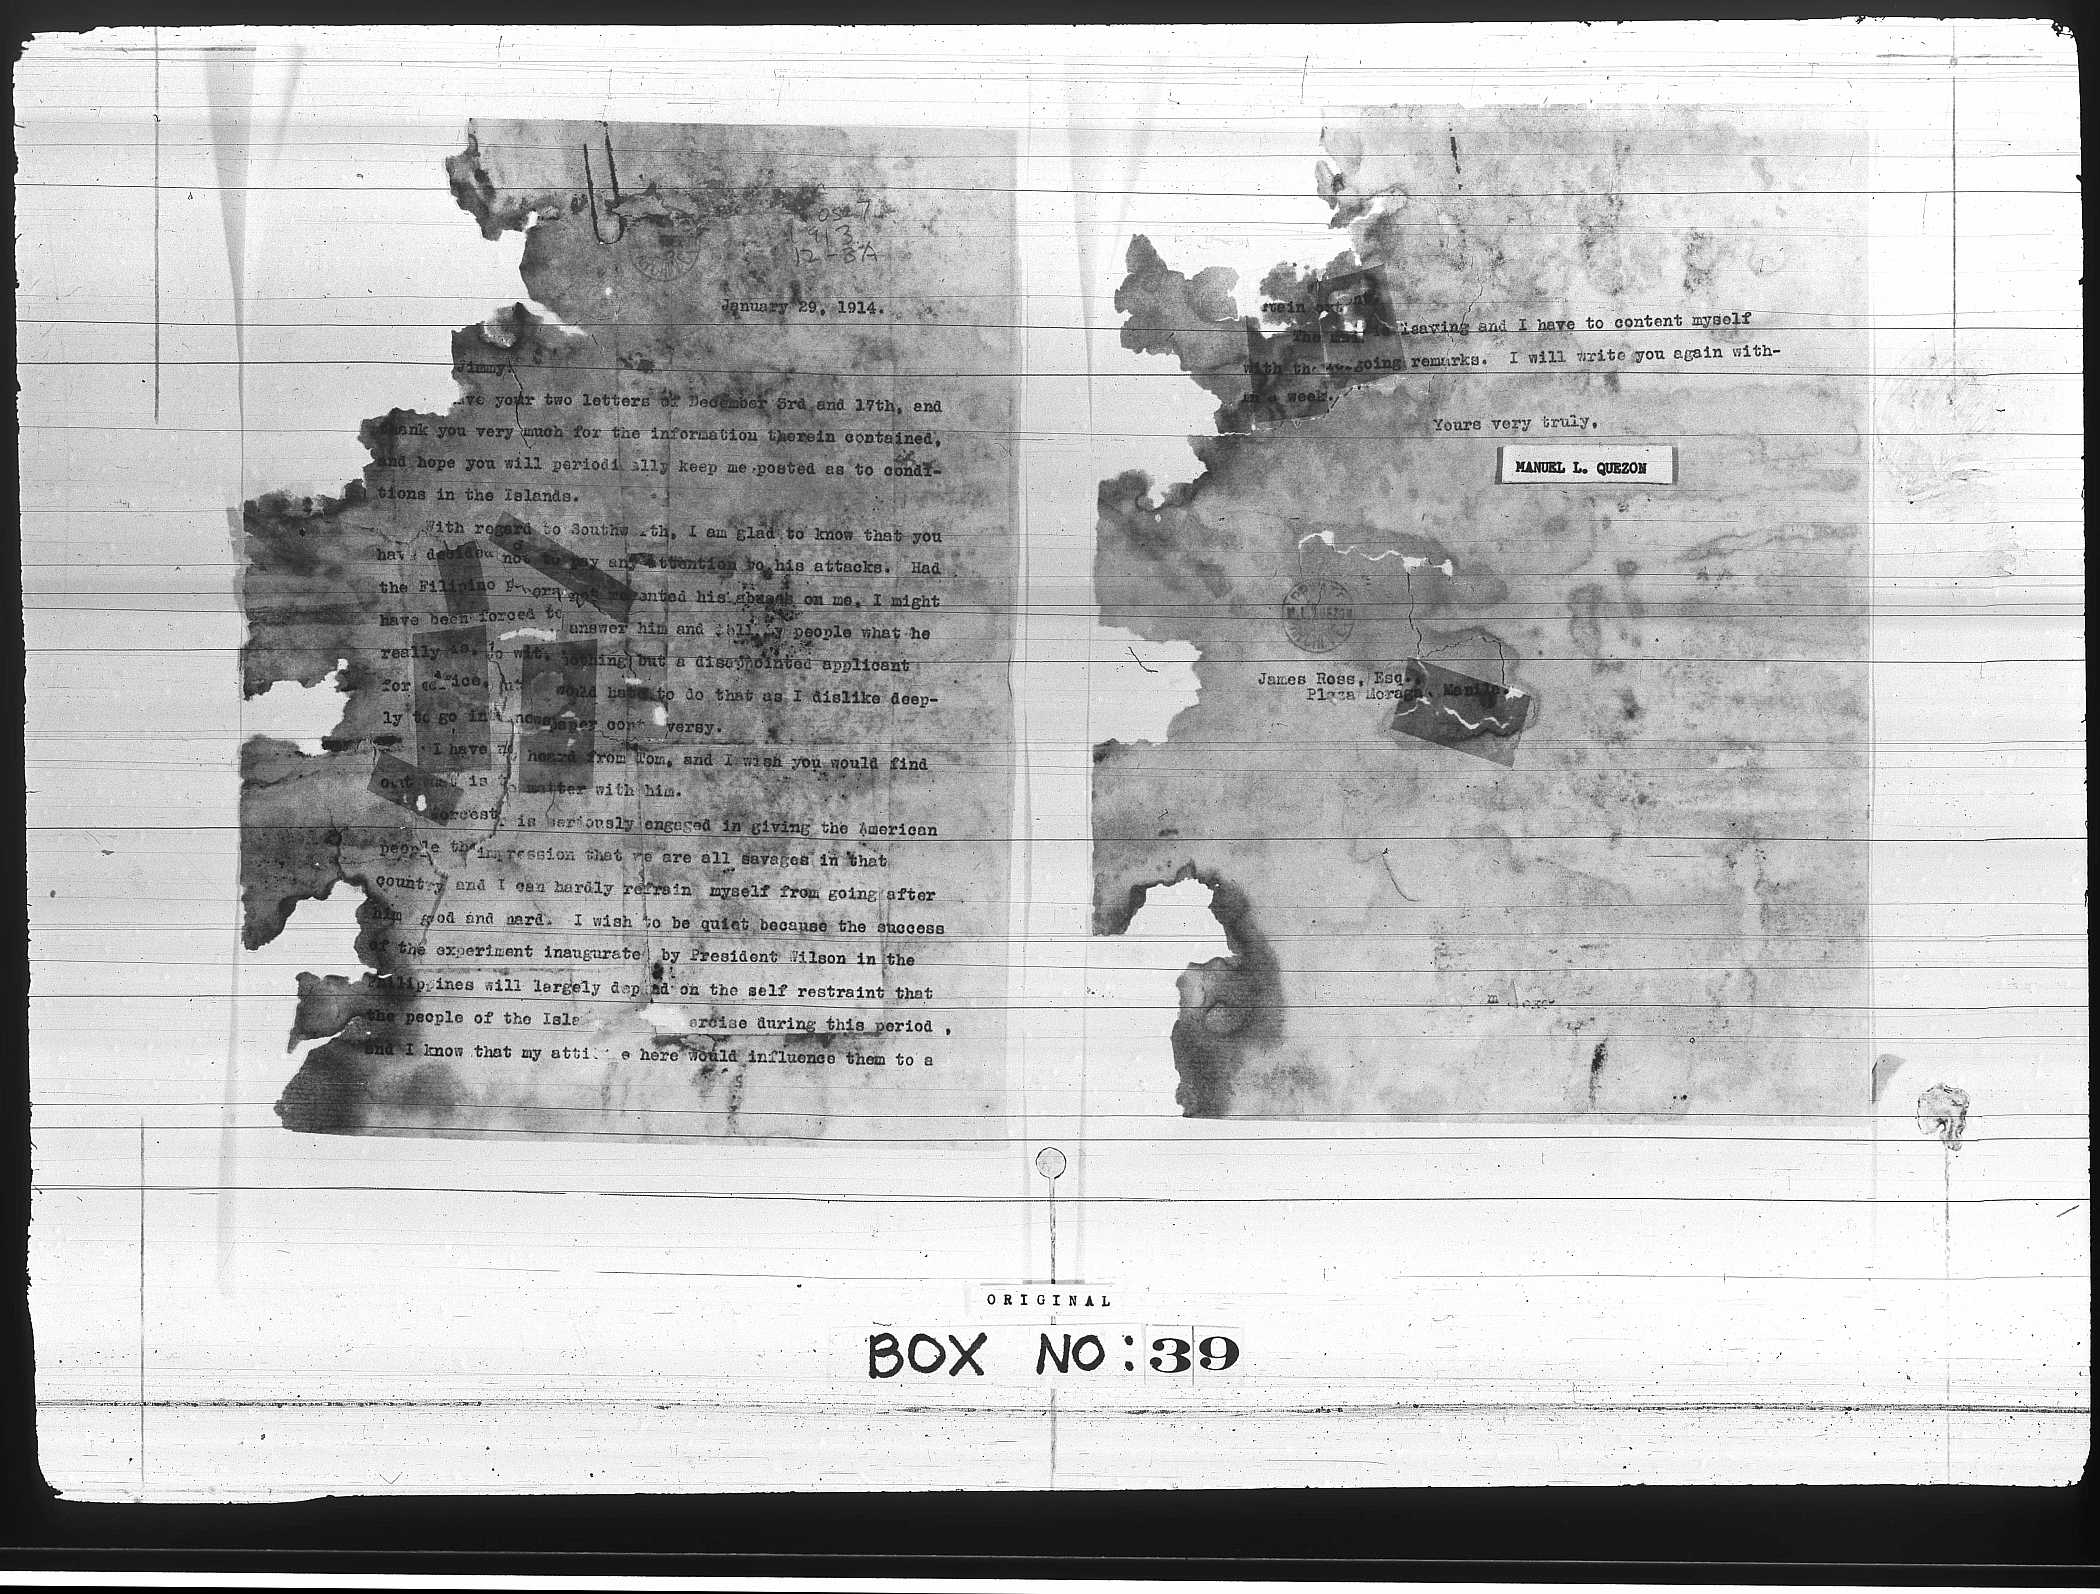 1913
12-3A
January 29, 1914.
Jimmy:
ve your two letters of December 3rd and 17th, and
thank you very much for the information therein contained,
and hope you will periodi ally keep me posted as to condi-
tions in the Islands.
With regard to Southw rth, I am glad to know that you
have decided not to pay any attention to his attacks. Had
the Filipino not resented his abuses on me, I might
have been forced to answer him and tell my people what he
really is, to wit, nothing but a disappointed applicant
for office, but would hate to do that as I dislike deep-
ly to go int newspaper cont versy.
I have no heard from Tom, and I wish you would find
out what is matter with him.
Worcest r is seriously engaged in giving the American
people the impression that we are all savages in that
country and I can hardly refrain myself from going after
him good and hard. I wish to be quiet because the success
of the experiment inaugurate by President Wilson in the
Philippines will largely depend on the self restraint that
the people of the Isla ercise during this period,
and I know that my atti e here would influence them to a
rtain ext
The mail is leaving and I have to content myself
with the going remarks. I will write you again with-
in a week.
Yours very truly,
MANUEL L. QUEZON
James Ross, Esq.,
Plaza Moraga, Manila.
ORIGINAL
BOX NO: 39